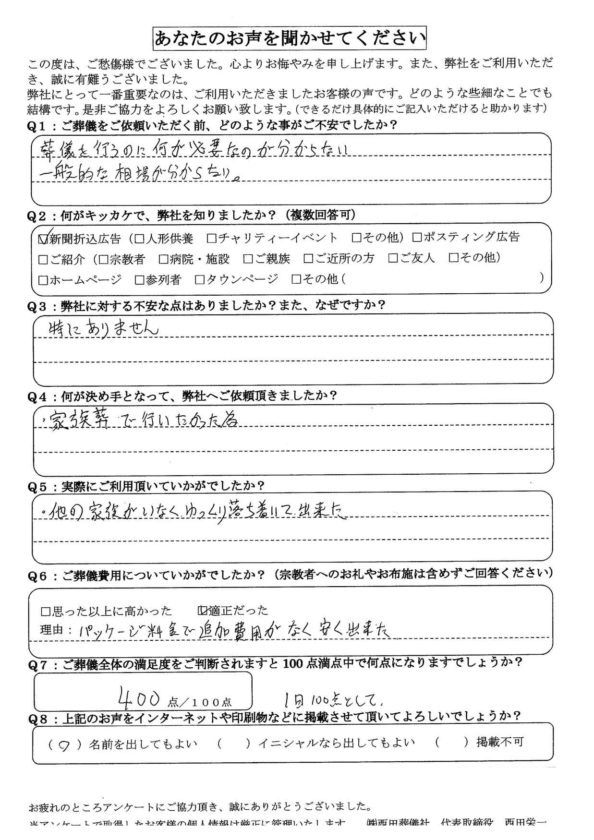 あなたのお声を聞かせてください
この度は、ご愁傷様でございました。心よりお悔やみを申し上げます。また、弊社をご利用いただ
き、誠に有難うございました。
弊社にとって一番重要なのは、ご利用いただきましたお客様の声です。どのような些細なことでも
結構です。是非ご協力をよろしくお願い致します。（できるだけ具体的にご記入いただけると助かります）
Q1：ご葬儀をご依頼いただく前、どのような事がご不安でしたか？
葬儀を行うのに何が必要なのか分からない
一般的な相場が分からない。
Q2：何がキッカケで、弊社を知りましたか？（複数回答可）
☑新聞折込広告（□人形供養 □チャリティーイベント □その他）□ポスティング広告
□ご紹介（□宗教者 □病院・施設 □ご親族 □ご近所の方 □ご友人 □その他）
□ホームページ □参列者 □タウンページ □その他（ ）
Q3：弊社に対する不安な点はありましたか？また、なぜですか？
特にありません
Q4：何が決め手となって、弊社へご依頼頂きましたか？
・家族葬で行いたかった為
Q5：実際にご利用頂いていかがでしたか？
・他の家族がいなくゆっくり落ち着いて出来た
Q6：ご葬儀費用についていかがでしたか？（宗教者へのお礼やお布施は含めずご回答ください）
□思った以上に高かった ☑適正だった
理由：パッケージ料金で追加費用がなく安く出来た
Q7：ご葬儀全体の満足度をご判断されますと100点満点中で何点になりますでしょうか？
400 点／100点 1日100点として。
Q8：上記のお声をインターネットや印刷物などに掲載させて頂いてよろしいでしょうか？
（○）名前を出してもよい （ ）イニシャルなら出してもよい （ ）掲載不可
お疲れのところアンケートにご協力頂き、誠にありがとうございました。
当アンケートで取得したお客様の個人情報は厳正に管理いたします。 ㈱西田葬儀社 代表取締役 西田栄一